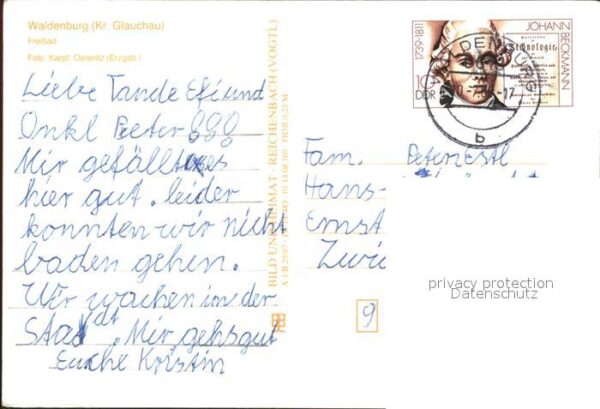 Waldenburg (Kr. Glauchau)
Freibad
Foto: Karpf, Oelsnitz (Erzgeb.)
Liebe Tande Efi und
Onkl Peter
Mir gefällt es
hier gut. leider
konnten wir nicht
baden gehen.
Wir wachen in der
Stadt. Mir gehs gut
Euche Kristin
BILD UND HEIMAT · REICHENBACH (VOGTL)
JOHANN
BECKMANN
1739-1811
Technologie
10
DDR
WALDENBURG
b
Fam.
Hans-
Ernst
Zwic
privacy protection
Datenschutz
9